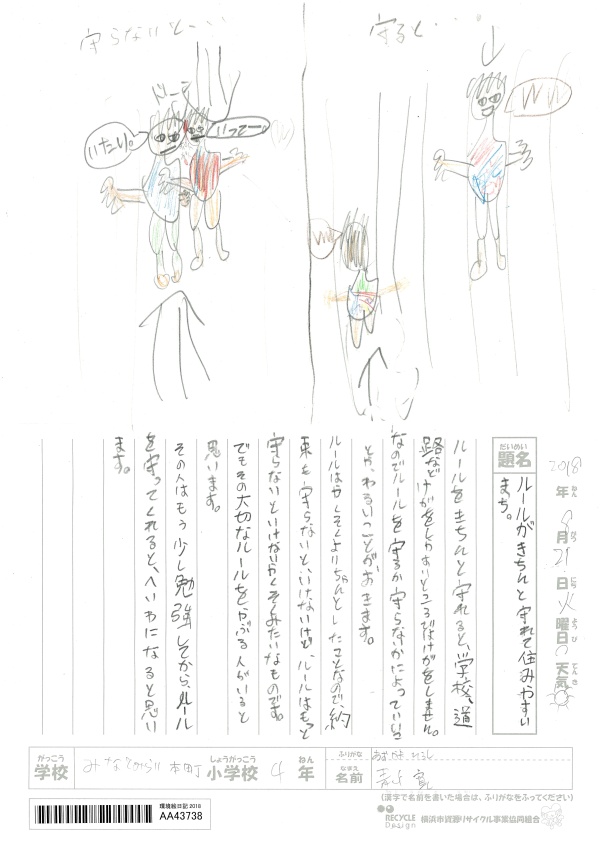 守らないと・・・
守ると・・・
ドーン
いたい。
いってー。
WW
WW
だいめい
題名
ルールがきちんと守れて住みやすい
まち。
2018
年 月 21 日 火 曜日 天気
ねん がつ にち よう び てん き
ルールをきちんと守れると、学校、道
路などけがをしやすいところでけがをしません。
なのでルールを守るか守らないかによっていいこ
とか、わるいことがおきます。
ルールはやくそくよりちゃんとしたことなので、約
束も守らないと、いけないけど、ルールはもっと
守らないといけないやくそくみたいなものです。
でもその大切なルールをやぶる人がいると
思います。
その人はもう少し勉強してから、ルール
を守ってくれると、へいわになると思い
ます。
がっこう
学校
みなとみらい本町
しょうがっこう
小学校
4
ねん
年
ふりがな
なまえ
名前
(漢字で名前を書いた場合は、ふりがなをふってください)
環境絵日記 2018
AA43738
RECYCLE
Design
横浜市資源リサイクル事業協同組合